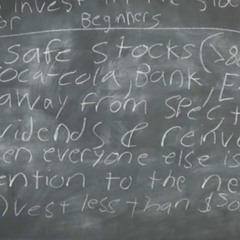 invest in the stoc
or Beginners
safe stocks (
oca-cola, Bank
away from spe
vidends & reinv
en everyone else is
ention to the ne
nvest less than $